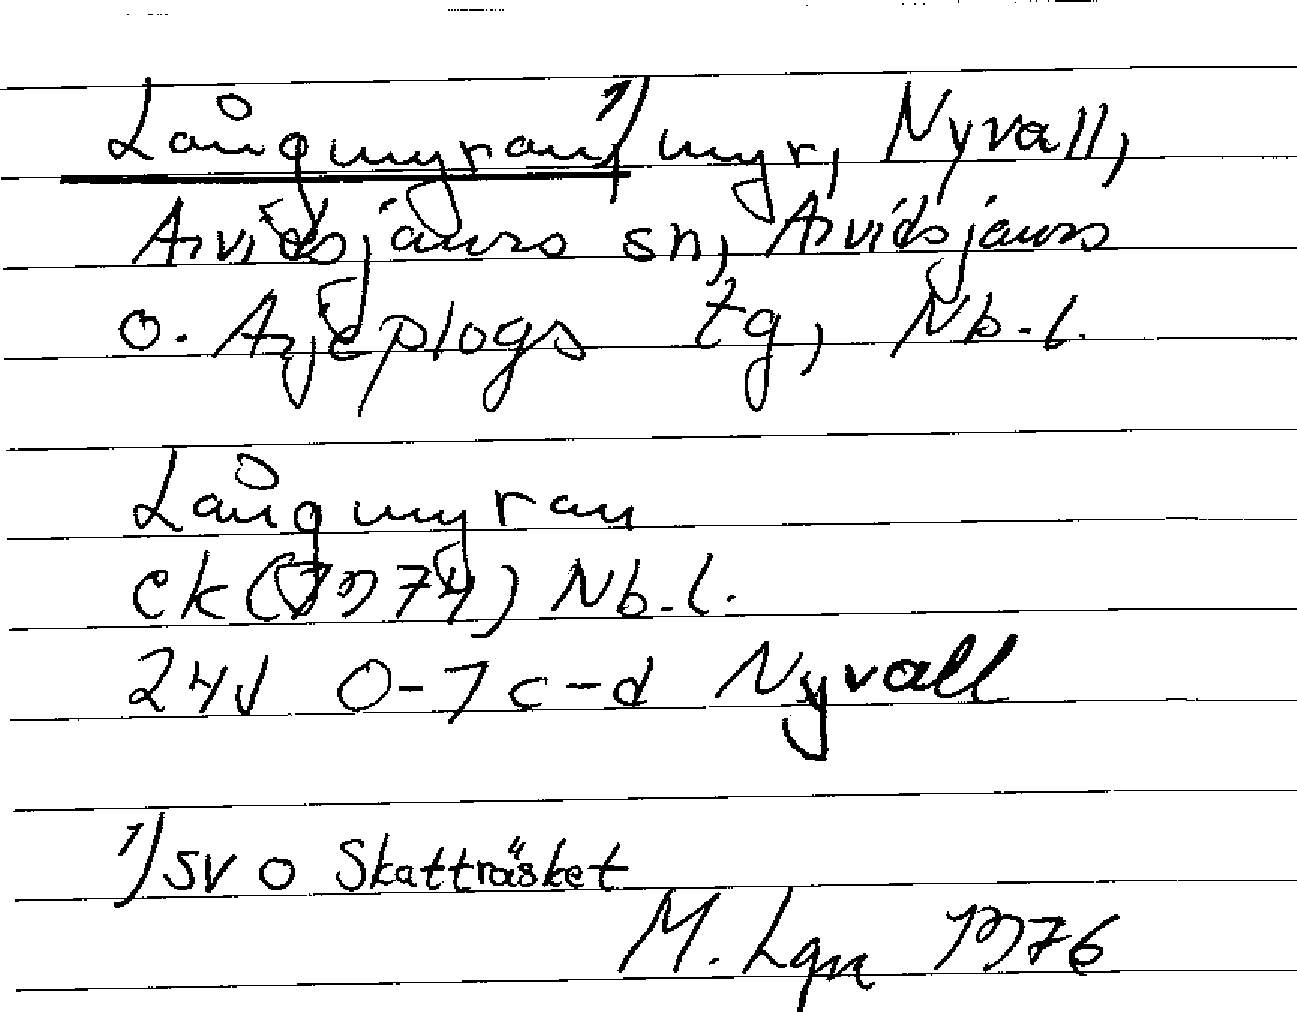 Långmyran 1) myr, Nyvall,
Arvidsjaurs sn, Arvidsjaurs
o. Arjeplogs tg, Nb.l.
Långmyran
ek (1974) Nb.l.
24J 0-1 c-d Nyvall
1) SV o Skatträsket
M. Lgn 1976